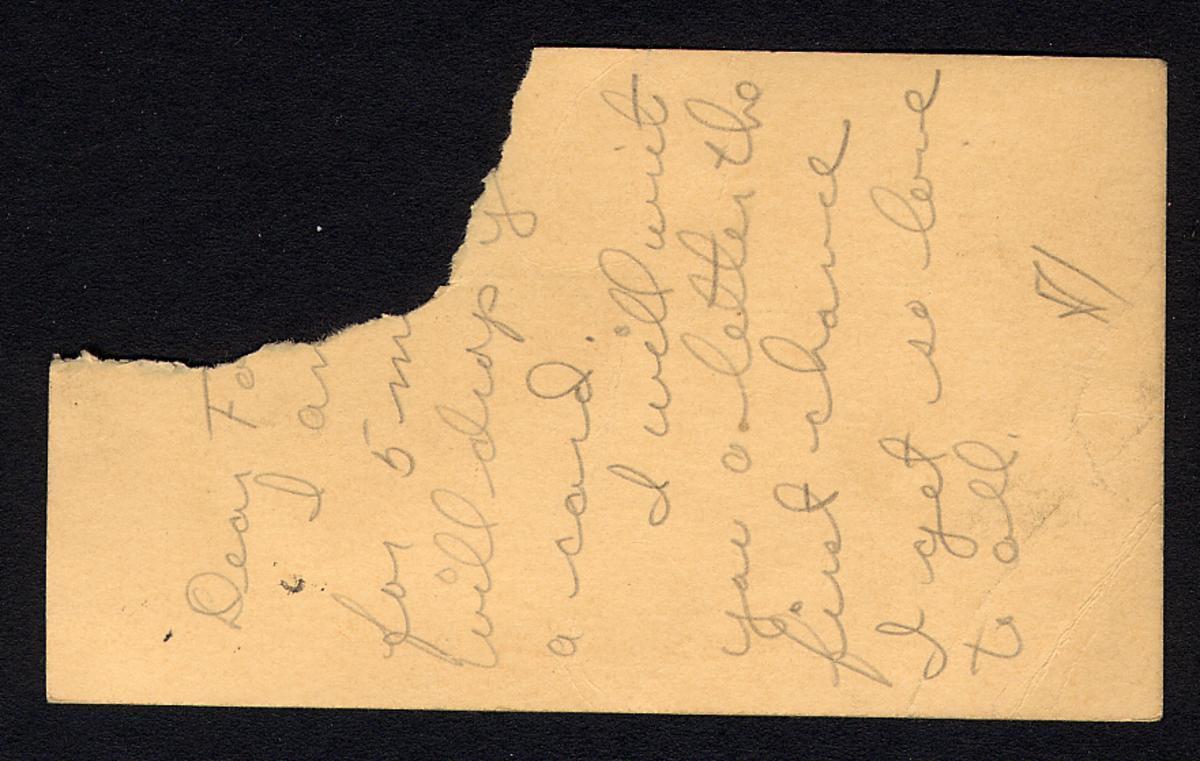 Dear Fo
I am
for 5 m
will drop y
a card.
I will writ
you a letter the
first chance
I get so love
to all.